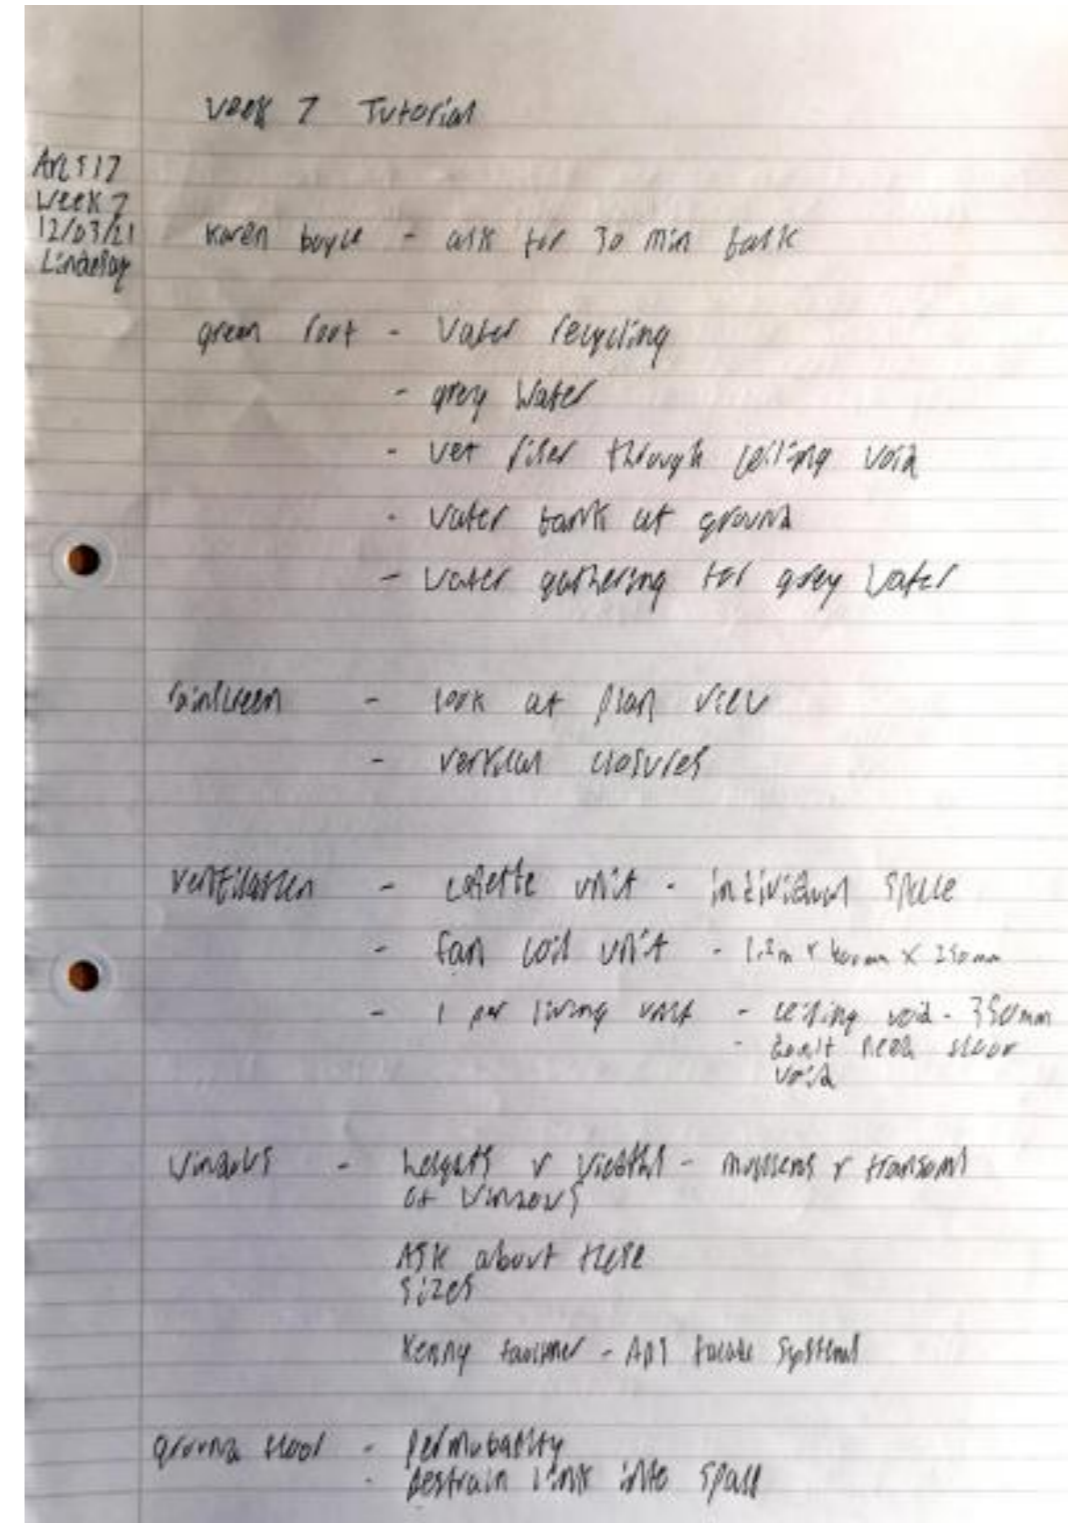 Week 7 Tutorial
Week 7
12/03/21
karen boyle - ask for 30 min talk
green roof - water recycling
- grey water
- wet riser through ceiling void
- water tank at ground
- water gathering for grey water
rainscreen - look at plan view
- vertical closures
ventilation - casette unit - individual space
- fan coil unit - 1.2m x 600mm x 250mm
- 1 per living unit - ceiling void - 350mm
- don't need floor
void
windows - heights & widths - mullions & transoms
of windows
ASK about these
sizes
Kenny - facade systems
ground floor - permubality
- pestrain link into space